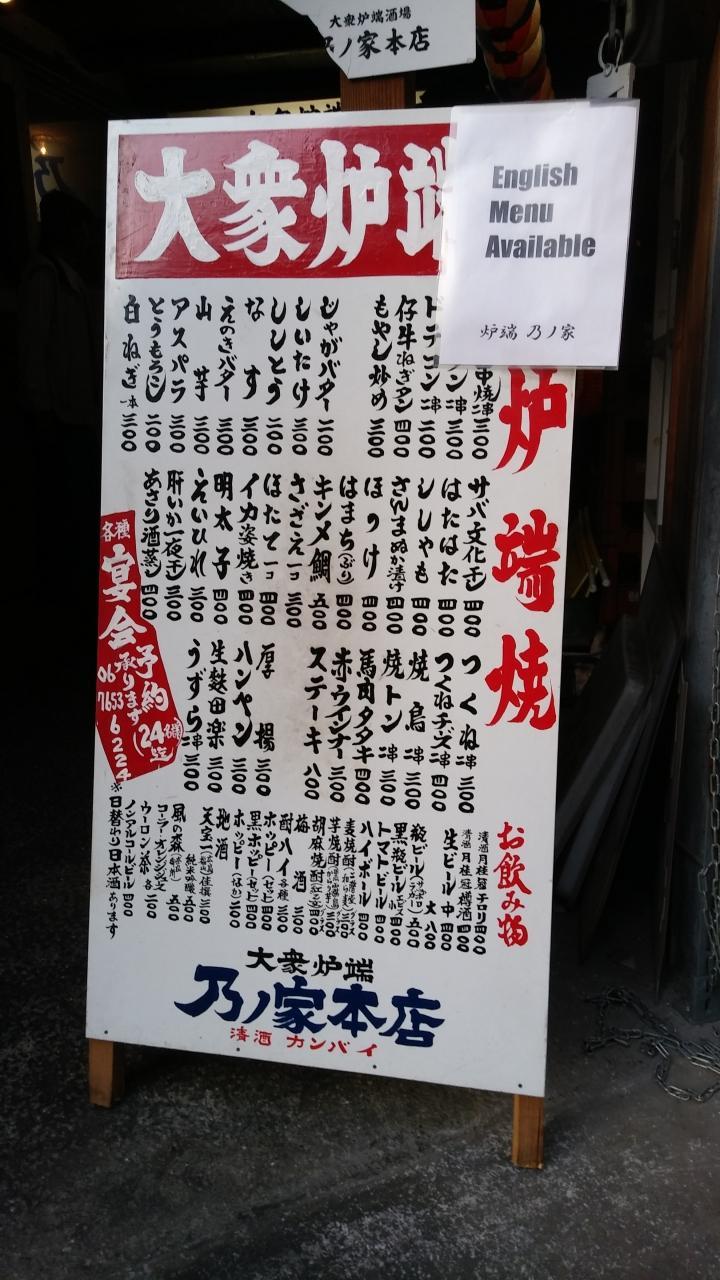 大衆炉端酒場
乃ノ家本店
大衆炉端
English
Menu
Available
炉端 乃ノ家
炉端焼
串焼二串 三〇〇
ドテコン二串 二〇〇
仔牛ねぎタン 四〇〇
もやし炒め 三〇〇
じゃがバター 二〇〇
しいたけ 三〇〇
ししとう 二〇〇
なす 三〇〇
えのきバター 三〇〇
山芋 三〇〇
アスパラ 三〇〇
とうもろこし 二〇〇
白ねぎ一本 三〇〇
サバ文化干 四〇〇
はたはた 四〇〇
ししゃも 四〇〇
さんまぬか漬け 四〇〇
ほっけ 四〇〇
はまち(ぶり) 四〇〇
キンメ鯛 五〇〇
さざえ一コ 三〇〇
ほたて一コ 四〇〇
イカ姿焼き 四〇〇
明太子 四〇〇
えいひれ 三〇〇
肝いか一夜干 三〇〇
あさり酒蒸し 四〇〇
つくね二串 三〇〇
つくねチーズ二串 四〇〇
焼鳥二串 三〇〇
焼トン二串 三〇〇
馬肉タタキ 四〇〇
赤ウインナー 三〇〇
ステーキ 八〇〇
厚揚 三〇〇
ハンペン 三〇〇
生麩田楽 三〇〇
うずら二串 三〇〇
各種
宴会
予約
承ります
(24名様迄)
06
7653
6224
お飲み物
清酒月桂冠チロリ 四〇〇
清酒月桂冠樽酒 四〇〇
生ビール 中 四〇〇
大 八〇〇
瓶ビール 五〇〇
黒瓶ビール
トマトビール 四〇〇
ハイボール 四〇〇
麦焼酎
芋焼酎
胡麻焼酎
梅酒 三〇〇
酎ハイ各種 三〇〇
ホッピー(セット) 四〇〇
黒ホッピー(セット) 四〇〇
ホッピー(なか) 二〇〇
地酒
天宝一
風の森 純米吟醸 五〇〇
コーラ・オレンジジュース
ウーロン茶 各二〇〇
ノンアルコールビール 四〇〇
※日替わり日本酒あります
大衆炉端
乃ノ家本店
清酒 カンバイ